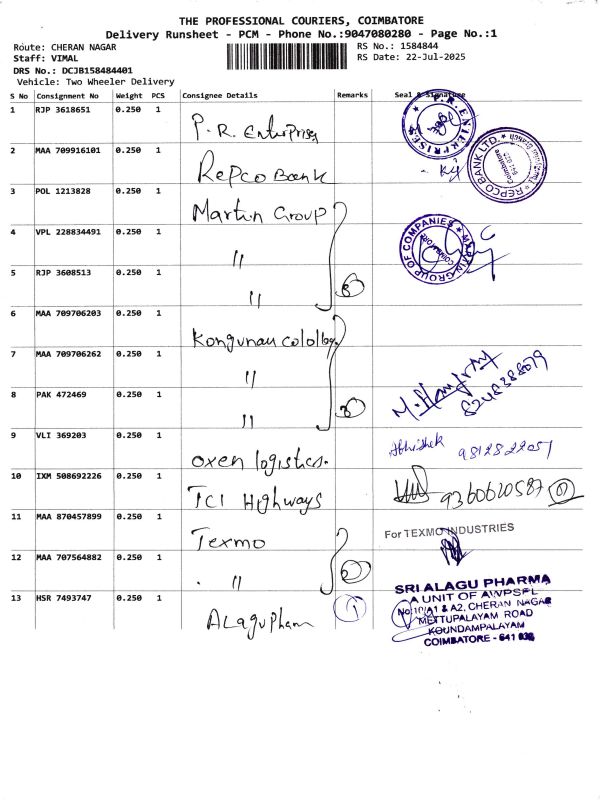 THE PROFESSIONAL COURIERS, COIMBATORE
Delivery Runsheet - PCM - Phone No.:9047080280 - Page No.:1
Route: CHERAN NAGAR
RS No.: 1584844
Staff: VIMAL
RS Date: 22-Jul-2025
DRS No.: DCJB158484401
Vehicle: Two Wheeler Delivery
S No Consignment No Weight PCS Consignee Details Remarks Seal & Signature
1 RJP 3618651 0.250 1 P.R. Enterprises
P.R. ENTERPRISES
2 MAA 709916101 0.250 1 Repco Bank
REPCO BANK LTD.
3 POL 1213828 0.250 1 Martin Group
4 VPL 228834491 0.250 1 "
MARTIN GROUP OF COMPANIES
COIMBATORE
5 RJP 3608513 0.250 1 " 3
6 MAA 709706203 0.250 1
7 MAA 709706262 0.250 1 "
8248388079
8 PAK 472469 0.250 1 " 3
9 VLI 369203 0.250 1 oxen logistics.
Abhishek 9812822051
10 IXM 508692226 0.250 1 TCI Highways
9360620587 1
11 MAA 870457899 0.250 1 Texmo
For TEXMO INDUSTRIES
12 MAA 707564882 0.250 1 " 2
13 HSR 7493747 0.250 1 ALagupham 1
SRI ALAGU PHARMA
A UNIT OF AWPSPL
No:10/A1 & A2, CHERAN NAGAR
METTUPALAYAM ROAD
KOUNDAMPALAYAM
COIMBATORE - 641